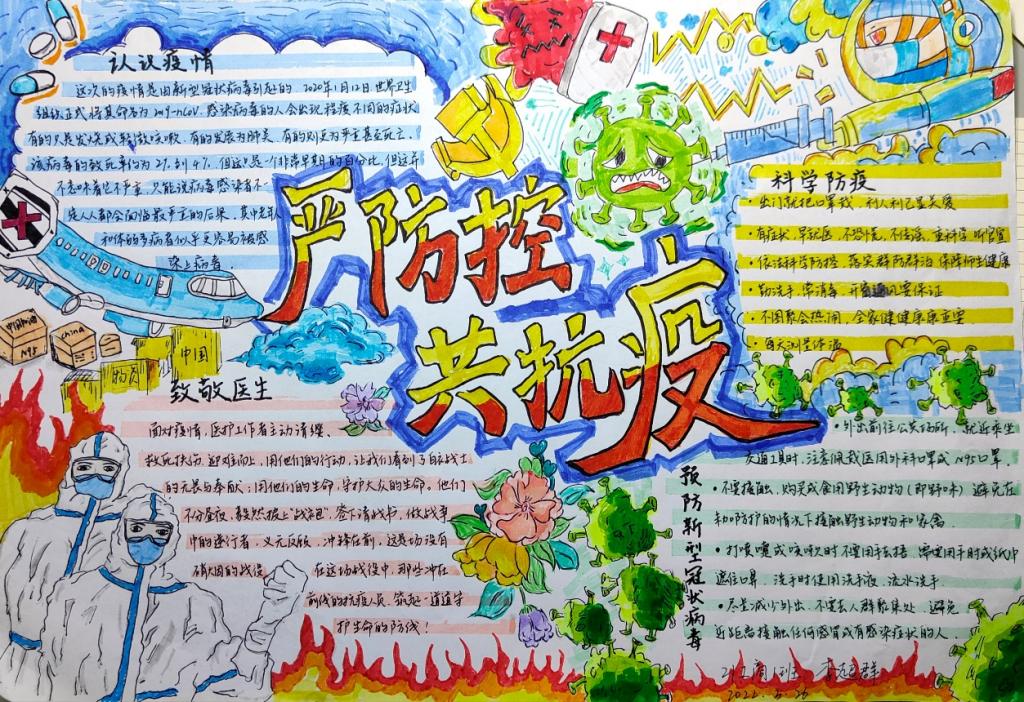 认识疫情
这次的疫情是由新型冠状病毒引起的。2020年1月12日,世界卫生
组织正式将其命名为2019-nCoV.感染病毒的人会出现程度不同的症状
有的只是发烧或轻微咳嗽,有的发展为肺炎,有的则更为严重甚至死亡.
该病毒的致死率约为2%到4%,但这只是一个非常早期的百分比,但这并
不意味着它不严重,只能说病毒感染者不一
定人人都会面临最严重的后果,其中老年人
和体弱多病者似乎更容易被感
染上病毒.
严防控
共抗疫
科学防疫
·出门就把口罩戴,利人利己显关爱
·有症状,早就医,不恐慌,不传谣,重科学,听官宣
·依法科学防控,落实群防群治,保障师生健康
·勤洗手,常消毒,开窗通风要保证
·不因聚会热闹,全家健健康康重要
·每天测量体温
中国加油
N95
china
物资
中国
致敬医生
面对疫情,医护工作者主动请缨、
救死扶伤,迎难而上,用他们的行动,让我们看到了白衣战士
的无畏与奉献;用他们的生命,守护大众的生命。他们
不分昼夜,毅然披上“战袍”,签下请战书,做战争
中的逆行者,义无反顾,冲锋在前,这是场没有
硝烟的战役 在这场战役中,那些冲在
前线的抗疫人员,筑起一道道守
护生命的防线!
预防新型冠状病毒
·外出前往公共场所、就近乘坐
交通工具时,注意佩戴医用外科口罩或N95口罩.
·不要接触,购买或食用野生动物(即野味)避免在
未加防护的情况下接触野生动物和家禽.
·打喷嚏或咳嗽时不要用手去捂,需要用手肘或纸巾
遮住口鼻、洗手时使用洗手液、流水洗手
·尽量减少外出,不要去人群聚集处,避免
近距离接触任何感冒或有感染症状的人.
2022.5.26